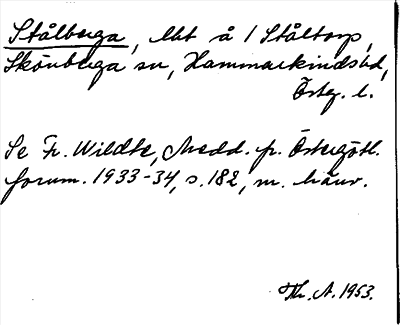 Stålberga, lht å 1 Ståltorp,
Skönberga sn, Hammarkinds hd,
Österg. l.
Se Fr. Wildte, Medd. fr. Östergötl.
forum. 1933-34, s. 182, m. hänv.
Th. A. 1953.